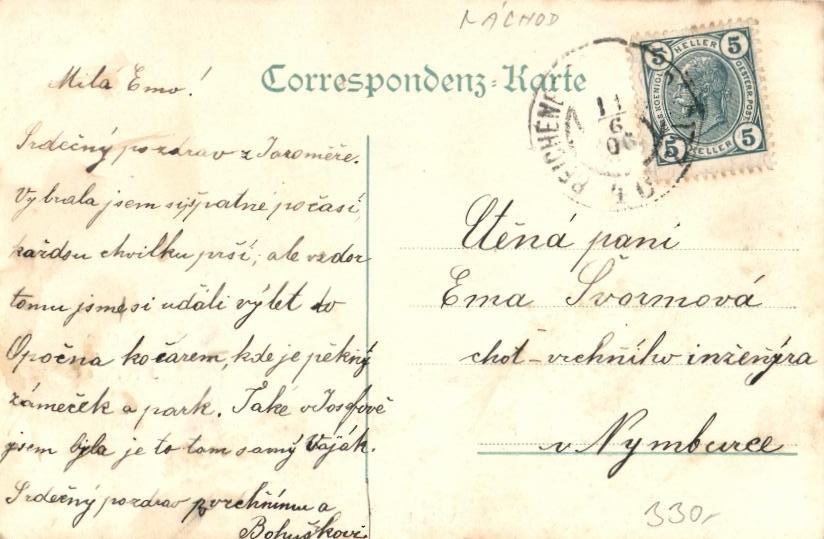 NÁCHOD
Correspondenz-Karte
5 HELLER 5
5 HELLER 5
11
6
06
Milá Emo!
Srdečný pozdrav z Jaroměře.
Vybrala jsem si špatné počasí,
každou chvilku prší, ale vzdor
tomu jsme si událi výlet do
Opočna kočárem, kde je pěkný
zámeček a park. Také v Josefově
jsem byla je to tam samý Voják.
Srdečný pozdrav p vrchnímu a
Bohuškovi
Ctěná paní
Ema Švormová
choť vrchního inženýra
v Nymburce
330,-